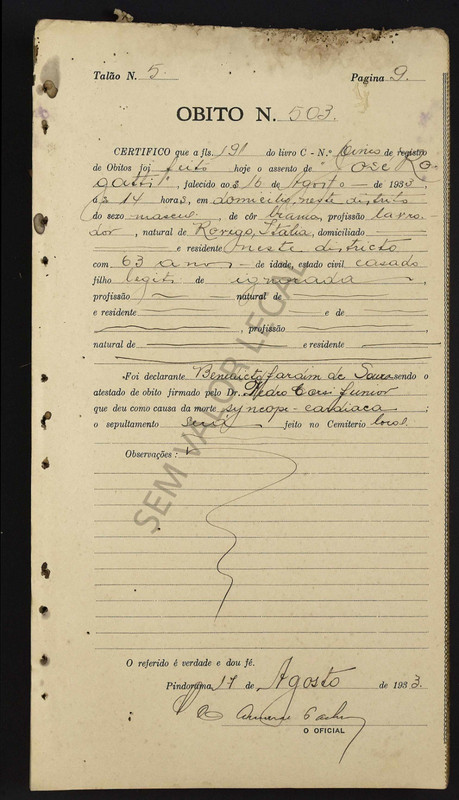 Talão N. 5. Pagina 9.
OBITO N. 503.
CERTIFICO que a fls. 191 do livro C - N.º de registro
de Obitos foi feito hoje o assento de José Ro
gatti, falecido aos 16 de Agosto de 1933,
ás 14 horas, em domicilio, neste districto
do sexo mascul., de côr branca, profissão lavra-
dor, natural de Rovigo, Italia, domiciliado
e residente neste districto
com 63 anos de idade, estado civil casado
filho legit. de ignorada
profissão natural de
e residente e de
, profissão
natural de e residente
Foi declarante Benedicto de Souza sendo o
atestado de obito firmado pelo Dr. Pedro Junior
que deu como causa da morte syncope-cardiaca ;
o sepultamento será feito no Cemiterio local.
Observações :
SEM VALOR LEGAL
O referido é verdade e dou fé.
Pindorama, 17 de Agosto de 1933.
O OFICIAL